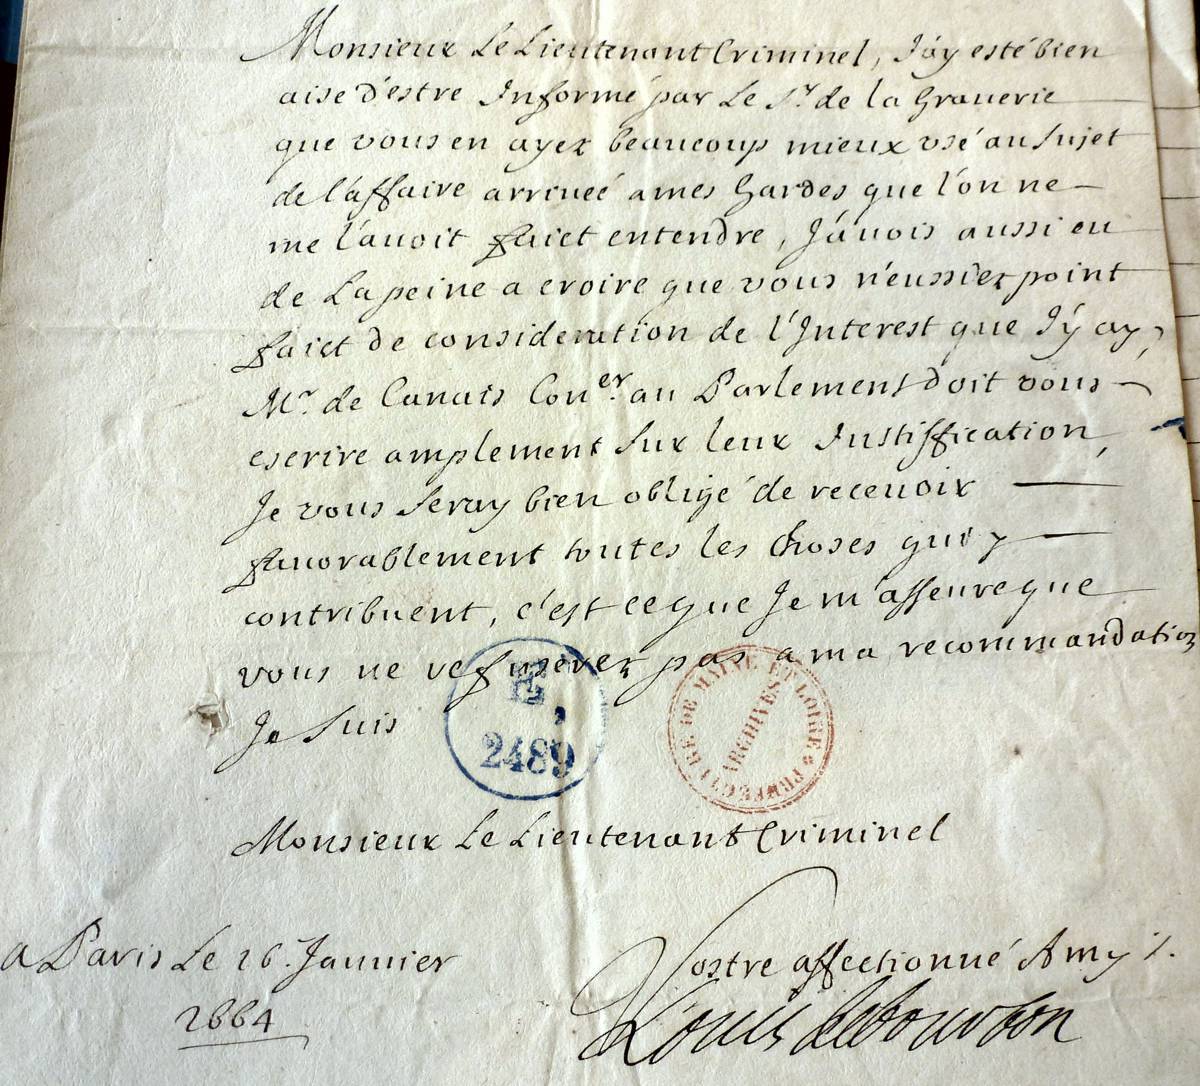 Monsieur Le Lieutenant Criminel, J'ay esté bien
aise d'estre Informé par Le Sr. de la Grauerie
que vous en ayez beaucoup mieux vsé au Sujet
de l'affaire arriueé a mes Gardes que l'on ne
me l'auoit faict entendre, J'auois aussi eu
de La peine a croire que vous n'eussiez point
faict de consideration de l'Interest que J'y ay,
Mr. de Canais Coner. au Parlement doit vous
escrire amplement Sur leur Justiffication,
Je vous Seray bien obligé de receuoir
fauorablement toutes les choses qui y
contribuent, c'est ce que Je m'asseure que
vous ne refuserez pas a ma recommandation
Je Suis
E,
2489
PREFECTURE DE MAINE ET LOIRE
ARCHIVES
Monsieur Le Lieutenant Criminel
A Paris Le 26. Januier
1664
Vostre affectionné Amy
Louis de bourbon